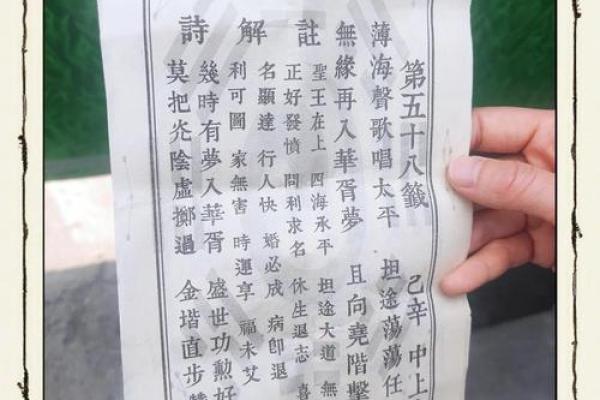 第五十八籤 己辛 中上
薄海聲歌唱太平 坦途蕩蕩任
無緣再入華胥夢 且向堯階擊
註解詩
聖王在上 四海承平 坦途大道 無
正好發憤 問利求名 休生退志 喜
名顯達 行人快 婚必成 病即退
利可圖 家無害 時運享 福未艾
幾時有夢入華胥 盛世功勳好
莫把光陰虛擲過 金堦直步